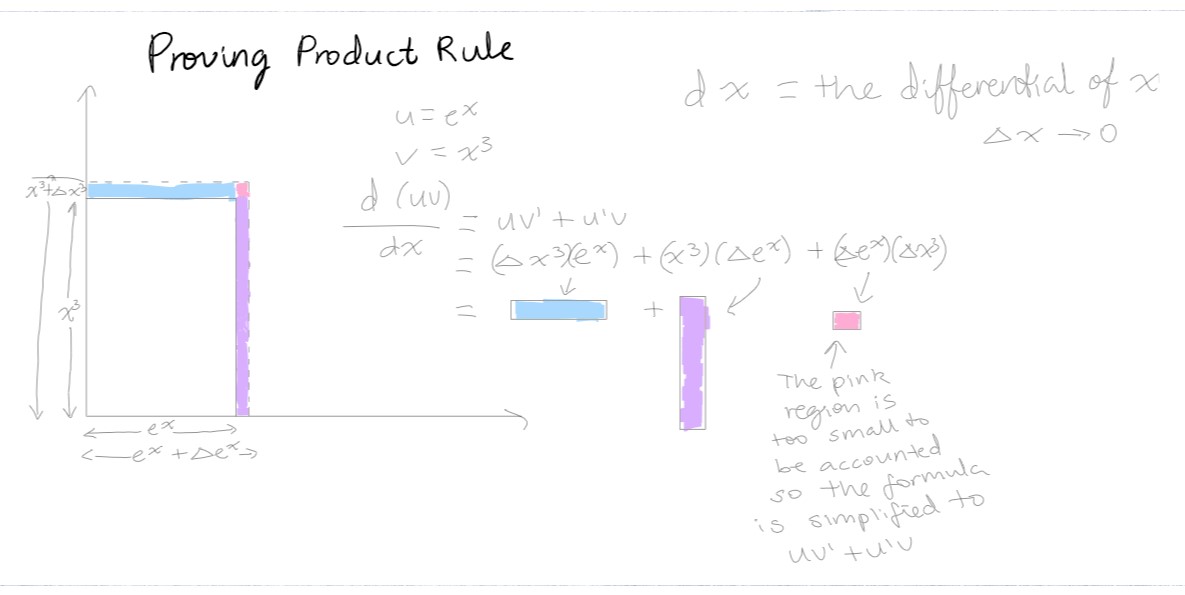 Proving Product Rule
dx = the differential of x
Δx → 0
u = e^x
v = x^3
d (uv)
dx
= uv' + u'v
= (Δx^3)(e^x) + (x^3)(Δe^x) + (Δe^x)(Δx^3)
= + 
x^3+Δx^3
x^3
e^x
e^x + Δe^x
The pink
region is
too small to
be accounted
so the formula
is simplified to
uv' + u'v